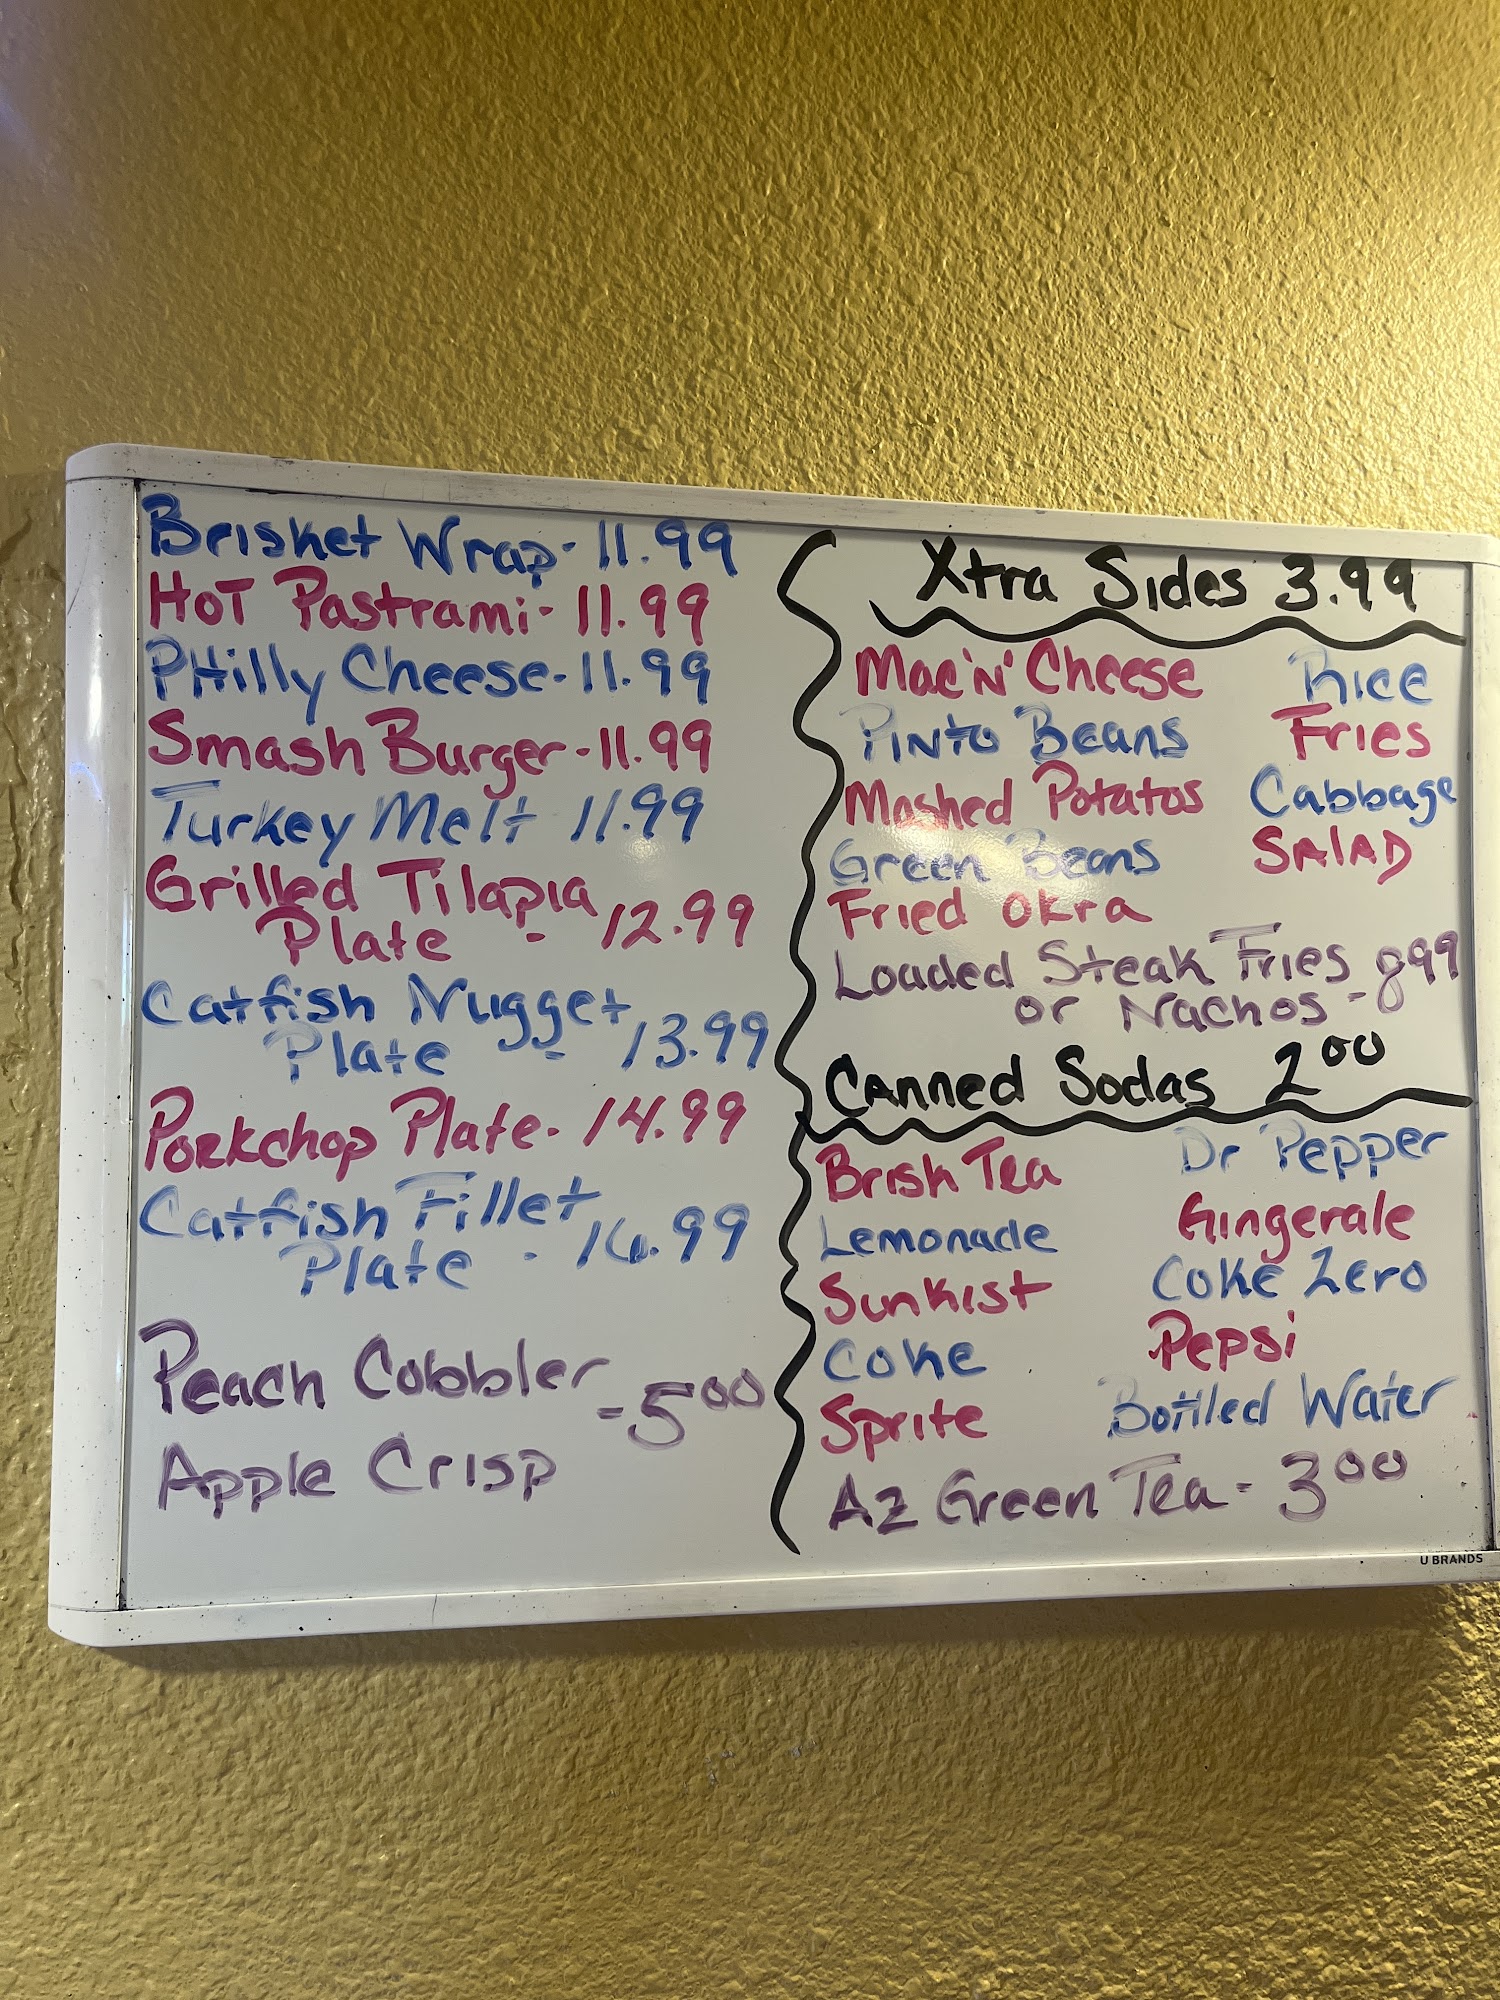 Brisket Wrap - 11.99
HOT Pastrami - 11.99
PHilly Cheese - 11.99
Smash Burger - 11.99
Turkey Melt 11.99
Grilled Tilapia
Plate - 12.99
Catfish Nugget
Plate - 13.99
Porkchop Plate - 14.99
Catfish Fillet
Plate - 16.99
Peach Cobbler
- 5.00
Apple Crisp
Xtra Sides 3.99
Mac 'N' Cheese Rice
Pinto Beans Fries
Mashed Potatos Cabbage
Green Beans SAlAD
Fried Okra
Loaded Steak Fries
or Nachos - 8.99
Canned Sodas 2.00
Brisk Tea Dr Pepper
Lemonade Gingerale
Sunkist Coke Zero
Coke Pepsi
Sprite Bottled Water
AZ Green Tea - 3.00
U BRANDS